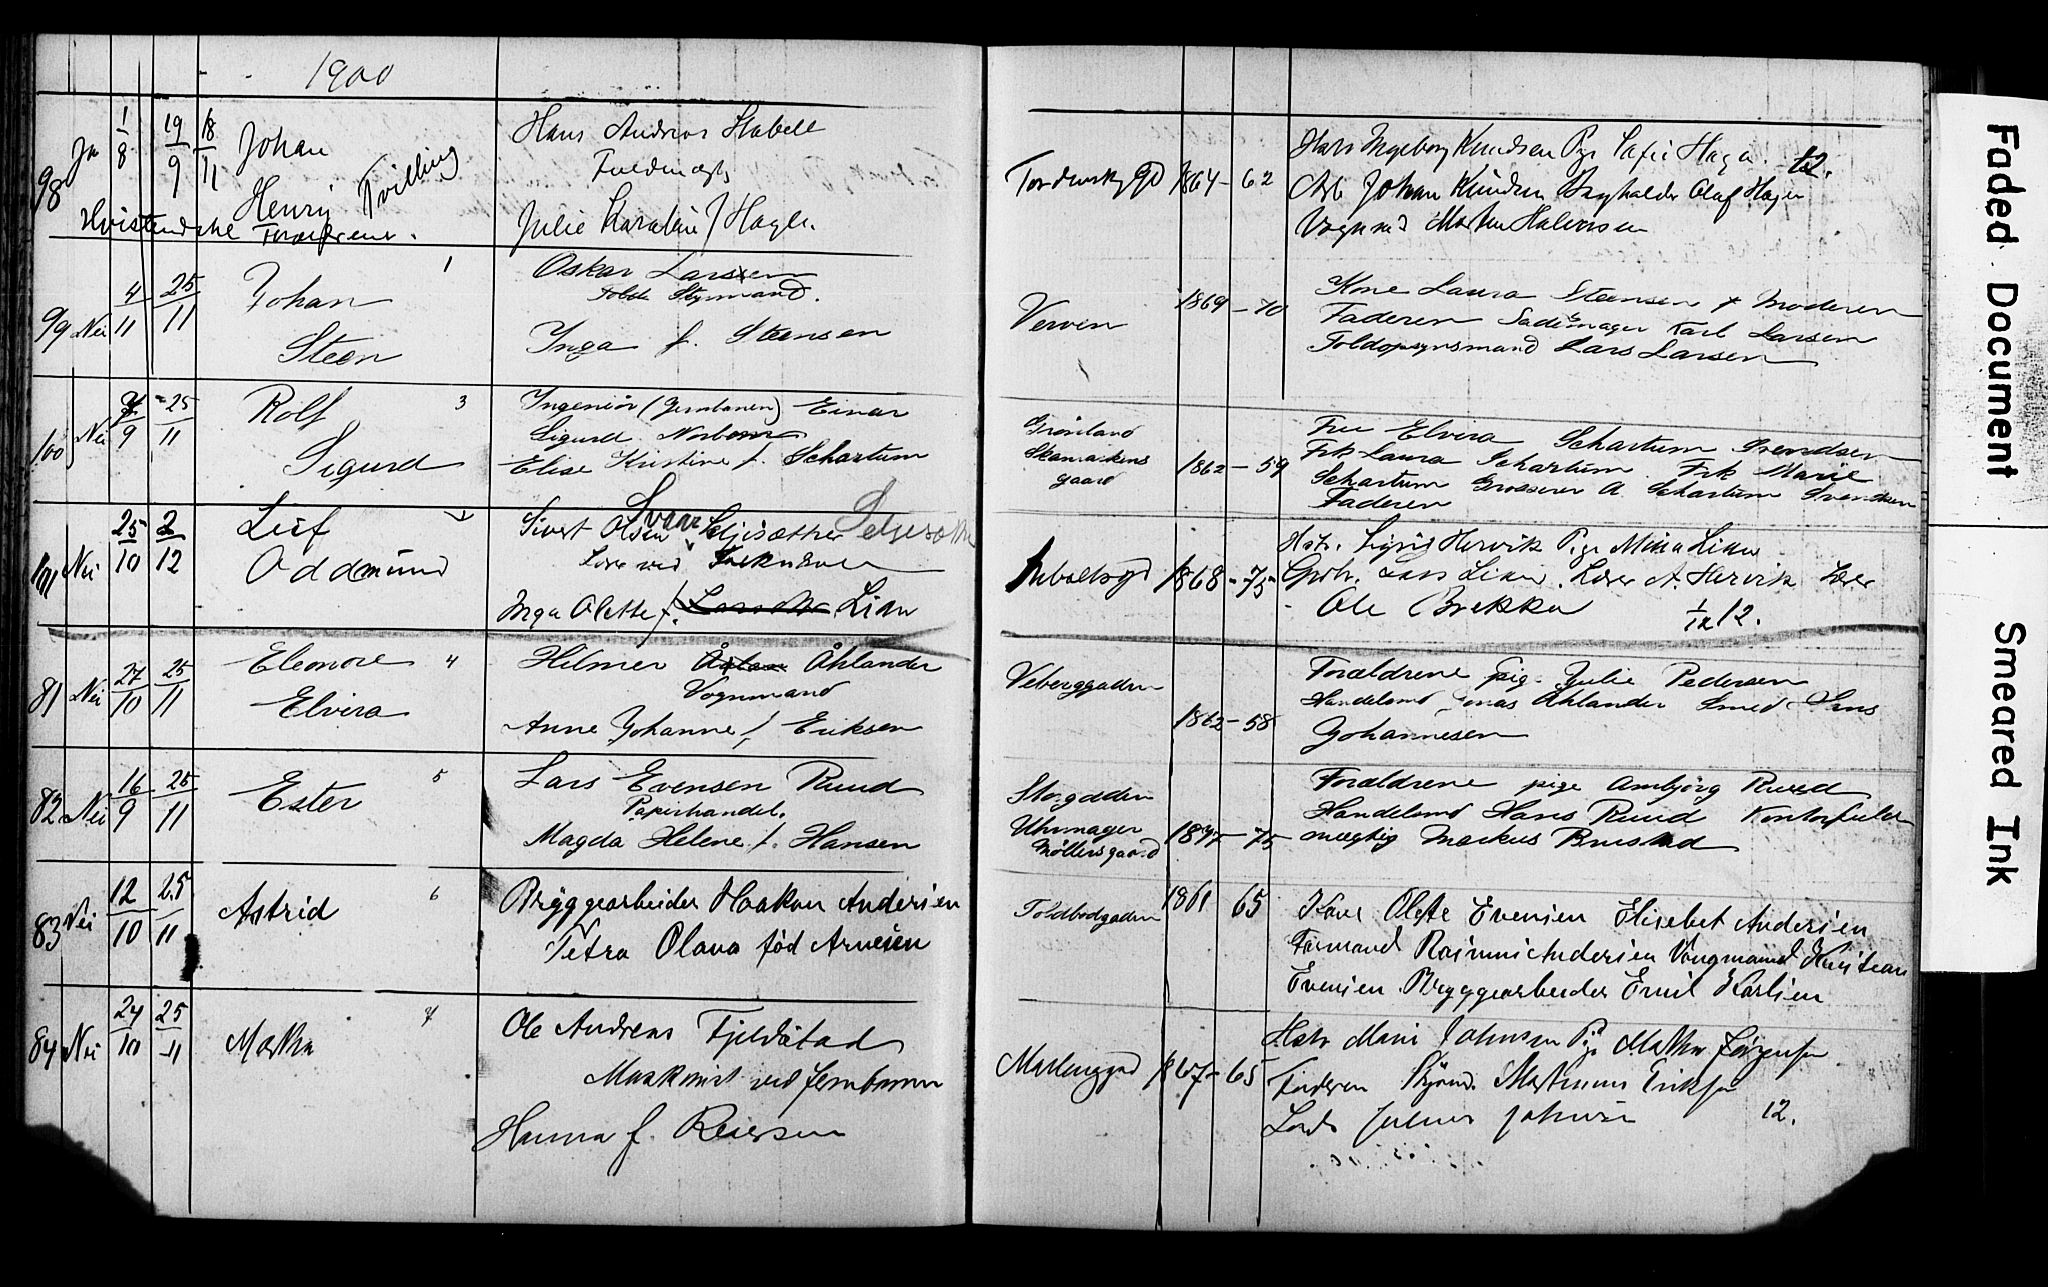 1900
98 Ja 1/8 19/9 18/11 Johan Henry Tvilling
Hans Andreas Stabell
Fuldmægt.
Julie Karoline f Hagle.
Tordenskj.gd 1864 - 62
Ingeborg Knudsen Pge Hagen 12.
Arb Johan Knudsen Olaf Hagen
Vognmd Morten Halvorsen
99 Nei 4/11 25/11 Johan Steen 1
Oskar Larssen
Styrmand.
Inga f. Steensen
Verven 1869 - 70
Kone Laura Steensen + Moderen
Faderen Sadelmager Karl Larsen
Toldopsynsmand Lars Larsen
100 Nei 7/9 25/11 Rolf Sigurd 3
Ingeniør (Jernbanen) Einar
Sigurd Norbom
Elise Kristine f. Schartum
Grønland
gaard
1862 - 59
Fru Elvira Schartum Svendsen
Frk Laura Schartum Frk Marie
Schartum Grosserer A. Schartum Svendsen
Faderen
101 Nei 25/10 2/12 Leif Oddmund
Sivert Olsen Svan Seljesæther
Inga Olette f. Lian
1868 - 75
Sigrid Hervik Pge Mina Lian
Lars Lian. Lærer A. Hervik Lærer
- Ole Brekke 1/12 12.
81 Nei 27/10 25/11 Eleonore Elvira 4
Hilmer Åhlander
Vognmand
Anne Johanne f. Eriksen
Veberggaden 1862 - 58
Forældrene pig. Julie Pedersen
Handelsmd Jonas Åhlander Smed Hans
Johannesen
82 Nei 16/9 25/11 Ester 5
Lars Evensen Ruud
Papirhandel.
Magda Helene f. Hansen
Storgaden
Uhrmager
Møllersgaard
1877 - 75
Forældrene pige Ambjørg Ruud
Handelsmd Hans Ruud Kontorfuld
mægtig Markus Brustad
83 Nei 12/10 25/11 Astrid 6
Bryggearbeider Haakon Andersen
Petra Olava fød Arnesen
Toldbodgaden 1861 65
Kone Olefe Evensen Elisebet Andersen
Formand Rasmus Andersen Vongmand Kristian
Evensen Bryggearbeider Emil Karlsen
84 Nei 24/10 25/11 Martha 7
Ole Andreas Fjeldstad
Maskinist ved Jernbanen
Hanna f. Reiersen
1867 - 65
Marie Johnsen Pge Martha Jørgensen
Faderen Martinius Eriksen
Julius Johnsen 12.
Faded Document
Smeared Ink